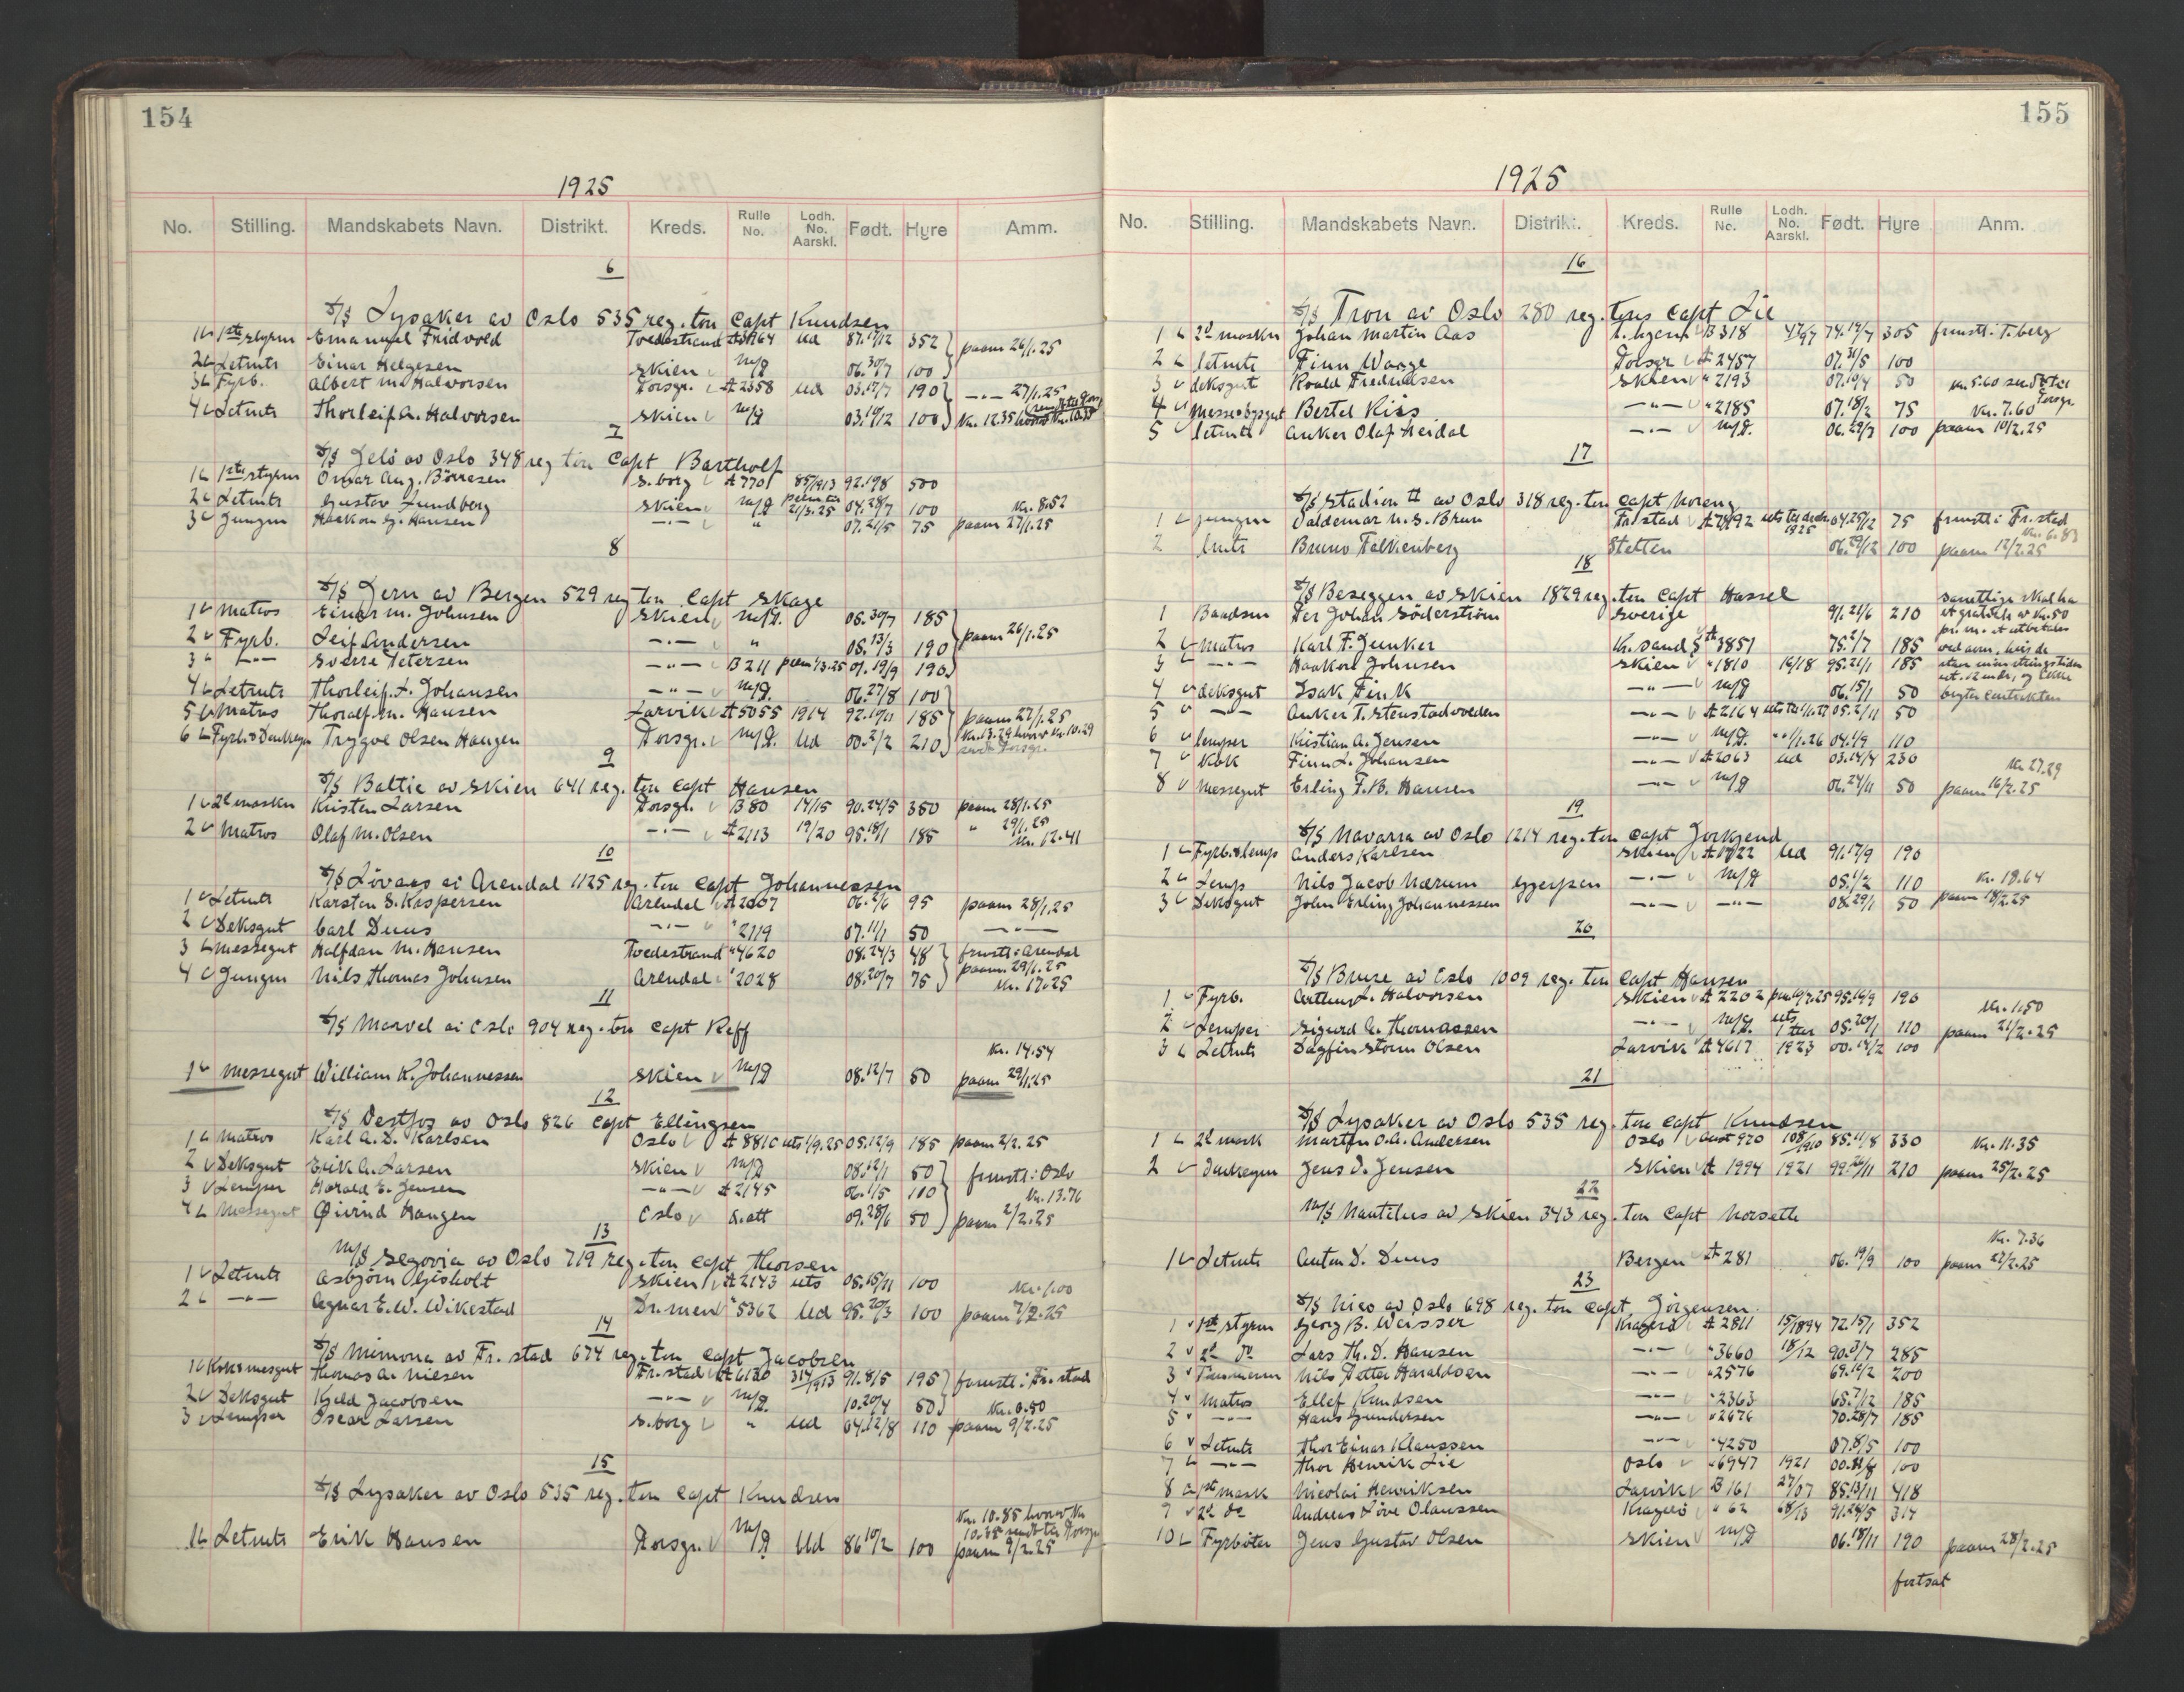 154
1925
No. Stilling. Mandskabets Navn. Distrikt. Kreds. Rulle No. Lodh. No. Aarskl. Født. Hyre Amm.
6
S/S Lysaker av Oslo 535 reg. ton Capt Knudsen
1 1ste styrm Emanuel Fridvold Tvedestrand Ud 87. 352
2 Letmtr Einar Helgesen Skien M/P 06.30/7 100 paam 26/1.25
3 Fyrb. Albert M. Halvorsen Porsgr. A 2358 Ud 03.17/7 190 —"— 27/1.25
4 Letmtr Thorleif A. Halvorsen Skien M/P 03.10/12 100 Kr. 12.35
7
S/S Jelö av Oslo 348 reg ton Capt Bartholf
1 1ste styrm Omar Aug. Börresen S.borg A 7701 85/1913 92.19/8 500
2 Letmtr Gustav Lundberg Skien M/P 21/3.25 04.28/7 100 Kr. 8.52
3 Jungm Haakon G. Hansen —"— " 07.21/5 75 paam 27/1.25
8
S/S Jern av Bergen 529 reg ton Capt Skage
1 Matros Einar M. Johnsen Skien M/P. 06.30/7 185
2 Fyrb. Leif Andersen —"— " 05.13/3 190 paam 26/1.25
3 —"— Sverre Petersen —"— B 211 1/3.25 01.19/9 190
4 Letmtr Thorleif L. Johansen —"— M/P. 06.27/8 100
5 Matros Thoralf M. Hansen Larvik A 5055 1914 92.19/11 185 paam 27/1.25
6 Fyrb. & Donkeym Trygve Olsen Haugen Porsgr. M/P. Ud 00.2/2 210 Kr. 13.29 hvorav Kr. 10.29 sendt Porsgr.
9
S/S Baltic av Skien 641 reg. ton Capt Hansen
1 2d maskn Kristen Larsen Porsgr. B 80 14/15 90.24/5 350 paam 28/1.25
2 Matros Olaf M. Olsen —"— A 2113 19/20 95.18/1 185 " 29/1.25
Kr. 12.41
10
S/S Lövaas av Arendal 1125 reg. ton Capt Johannessen
1 Letmtr Karsten S. Kaspersen Arendal A 2007 06.2/6 95 paam 28/1.25
2 Deksgut Carl Duus —"— " 2119 07.11/1 50 —"—
3 Messegut Halfdan M. Hansen Tvedestrand " 4620 08.24/3 48 frmstl: Arendal
4 Jungm Nils Thomas Johnsen Arendal " 2028 08.20/7 75 paam. 29/1.25
Kr. 17.25
11
S/S Marvel av Oslo 904 reg. ton Capt Reff
Kr. 14.54
1 Messegut William R. Johannessen Skien M/P 08.12/7 50 paam 29/1.25
12
S/S Vestfos av Oslo 826 Capt Ellingsen
1 Matros Karl A. D. Karlsen Oslo A 8810 uts 1/9.25 05.12/9 185 paam 2/2.25
2 Deksgut Erik A. Larsen Skien M/P 08.12/1 50 frmstl: Oslo
3 Lemper Harald E. Jensen —"— A 2145 06.1/5 100 Kr. 13.76
4 Messegut Øivind Haugen Oslo a.att 09.28/6 50 paam 2/2.25
13
M/S Segovia av Oslo 719 reg. ton Capt Thorsen
1 Letmtr Asbjørn Gisholt Skien A 2143 uts 05.15/11 100 Kr. 1.00
2 —"— Agnar E. W. Wikestad Dr.men " 5362 Ud 95.20/3 100 paam 7/2.25
14
S/S Mimona av Fr. stad 674 reg. ton Capt Jacobsen
1 Kok & mesgut Thomas A. Nielsen Fr. stad A 6120 314/1913 91.8/5 195 frmstl: Fr. stad
2 Deksgut Kjeld Jacobsen —"— M/P. 10.20/4 50 Kr. 6.50
3 Lemper Oscar Larsen S.borg " Ud 04.12/8 110 paam 9/2.25
15
S/S Lysaker av Oslo 535 reg. ton Capt Knudsen
Kr. 10.85 hvorav Kr
10.35 sendt til Porsgr
1 Letmtr Erik Hansen Porsgr. M/P Ud 86 10/2 100 paam 9/2.25
155
1925
No. Stilling. Mandskabets Navn. Distrikt. Kreds. Rulle No. Lodh. No. Aarskl. Født. Hyre Anm.
16
S/S Tron av Oslo 280 reg. tons Capt Lie
1 2d maskn Johan Martin Aas B 318 47/97 74.19/7 305 frmstl: T.berg
2 letmtr Finn Waage Porsgr A 2457 07.31/5 100
3 deksgut Roald Fredriksen Skien " 2193 07.10/4 50 Kr. 5.60 sendt til Porsgr.
4 Messe & byssgut Bertel Riis —"— " 2185 07.18/2 75 Kr. 7.60
5 letmtr Anker Olaf Heidal —"— M/P. 06.29/3 100 paam 10/2.25
17
S/S Stadion II av Oslo 318 reg. ton Capt Noreng
1 jungm Valdemar N. S. Brun Fr.stad A 7192 1925 04.25/12 75 frmstl: Fr.stad
Kr. 6.83
2 lmtr Bruno Falkenberg Stettin 06.29/12 100 paam 12/2.25
18
S/S Beseggen av Skien 1829 reg. ton Capt Hassel
1 Baadsm Per Johan Söderström Sverige 91.21/6 210
2 Matros Karl F. Junker Kr.sand S A 3851 75.2/7 185
3 —"— Haakon Johnsen Skien " 1810 16/18 95.21/1 185
4 deksgut Isak Fink —"— M/P 06.15/1 50
5 —"— Anker T. Stenstadvolden —"— A 2164 uts til 1/1.27 05.2/11 50
6 lemper Kristian A. Jensen —"— M/P. " 1/1.26 04.1/9 110
7 Kok Finn L. Johansen —"— A 2063 Ud 03.14/4 230 Kr. 27.29
8 Messegut Erling F. B. Hansen —"— M/P 06.24/11 50 paam 16/2.25
samtlige skal ha
et gratiale av Kr. 50
pr. m. at utbetales
ved avm. hvis de
19
S/S Navarra av Oslo 1214 reg. ton Capt Jorkjend
1 Fyrb. & lemp Anders Karlsen Skien A 1722 Ud 91.17/9 190
2 Lemp Nils Jacob Nærum Gjerpen —"— M/P 05.1/2 110 Kr. 18.64
3 Deksgut John Erling Johannessen —"— —"— 08.29/1 50 paam 18/2.25
20
S/S Bruse av Oslo 1009 reg. ton Capt Hansen
1 Fyrb. Arthur L. Halvorsen Skien A 2202 95.19/9 190 Kr. 1.50
2 Lemper Sigurd A. Thomassen —"— M/P. uts 05.20/1 110 paam 21/2.25
3 Letmtr Dagfin Storm Olsen Larvik A 4617 1923 00.14/2 100
21
S/S Lysaker av Oslo 535 reg. ton Capt Knudsen
1 2d mask Martin O. A. Andersen Oslo 920 108/1910 85.11/8 330 Kr. 11.35
2 donkeym Jens I. Jensen Skien A 1994 1921 99.26/11 210 paam 25/2.25
22
M/S Nautilus av Skien 343 reg. ton Capt Norseth
Kr. 7.36
1 Letmtr Anton D. Duus Bergen A 281 06.19/9 100 paam 27/2.25
23
S/S Nico av Oslo 698 reg. ton Capt Jörgensen
1 1st styrm Georg B. Weisser Kragerö A 2811 15/1894 72.15/1 352
2 2d do Lars Th. D. Hansen —"— " 3660 18/12 90.3/7 285
3 Tømmerm Nils Petter Haraldsen —"— " 2576 69.10/2 200
4 Matros Ellef Knudsen —"— " 2363 65.7/12 185
5 —"— Hans Gundersen —"— " 2676 70.28/7 185
6 Letmtr Thor Einar Klaussen —"— " 4250 07.8/5 100
7 —"— Thor Henrik Lie Oslo " 6947 1921 100
8 1st mask Nicolai Henriksen Larvik B 161 27/07 85.13/11 418
9 2d do Andreas Löve Olaussen Kragerö " 62 68/13 91.24/5 314
10 Fyrböter Jens Gustav Olsen Skien M/P 06.18/11 190 paam 28/2.25
fortsat